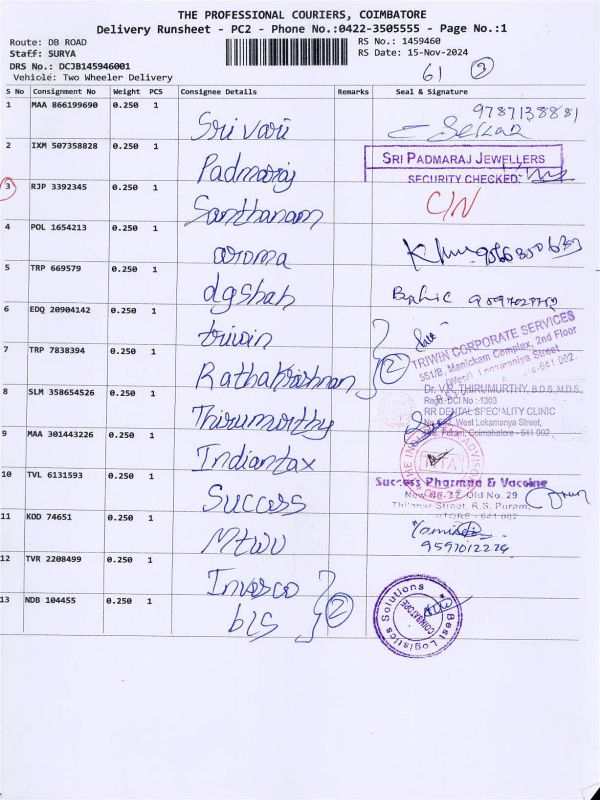 THE PROFESSIONAL COURIERS, COIMBATORE
Delivery Runsheet - PC2 - Phone No.:0422-3505555 - Page No.:1
Route: DB ROAD
Staff: SURYA
DRS No.: DCJB145946001
Vehiclé: Two Wheeler Delivery
RS No.: 1459460
RS Date: 15-Nov-2024
61 3
S No Consignment No Weight PCS Consignee Details Remarks Seal & Signature
1 MAA 866199690 0.250 1 Srivari 9787138881
2 IXM 507358828 0.250 1 Padmaraj SRI PADMARAJ JEWELLERS
SECURITY CHECKED
3 RJP 3392345 0.250 1 Santhanam C/N
4 POL 1654213 0.250 1 aroma
5 TRP 669579 0.250 1 dgshah
6 EDQ 20904142 0.250 1 triwin
TRIWIN CORPORATE SERVICES
551/B, Manickam Complex, 2nd Floor
7 TRP 7838394 0.250 1 Rathakrishnan 2
Dr. V.R. THIRUMURTHY, B.D.S.,M.D.S.,
Reg. DCI No :1303
8 SLM 358654526 0.250 1 Thirumurthy
RR DENTAL SPECIALITY CLINIC
West Lokamanya Street,
Puram, Coimbatore - 641 002
9 MAA 301443226 0.250 1 Indiantax
10 TVL 6131593 0.250 1 Success
Success Pharma & Vaccine
New No.12, Old No. 29
Street, R.S. Puram,
11 KOD 74651 0.250 1 Mtwu
9591012224
12 TVR 2208499 0.250 1 Invesco
13 NDB 104455 0.250 1 bls 2
Best Logistics Solutions
COIMBATORE